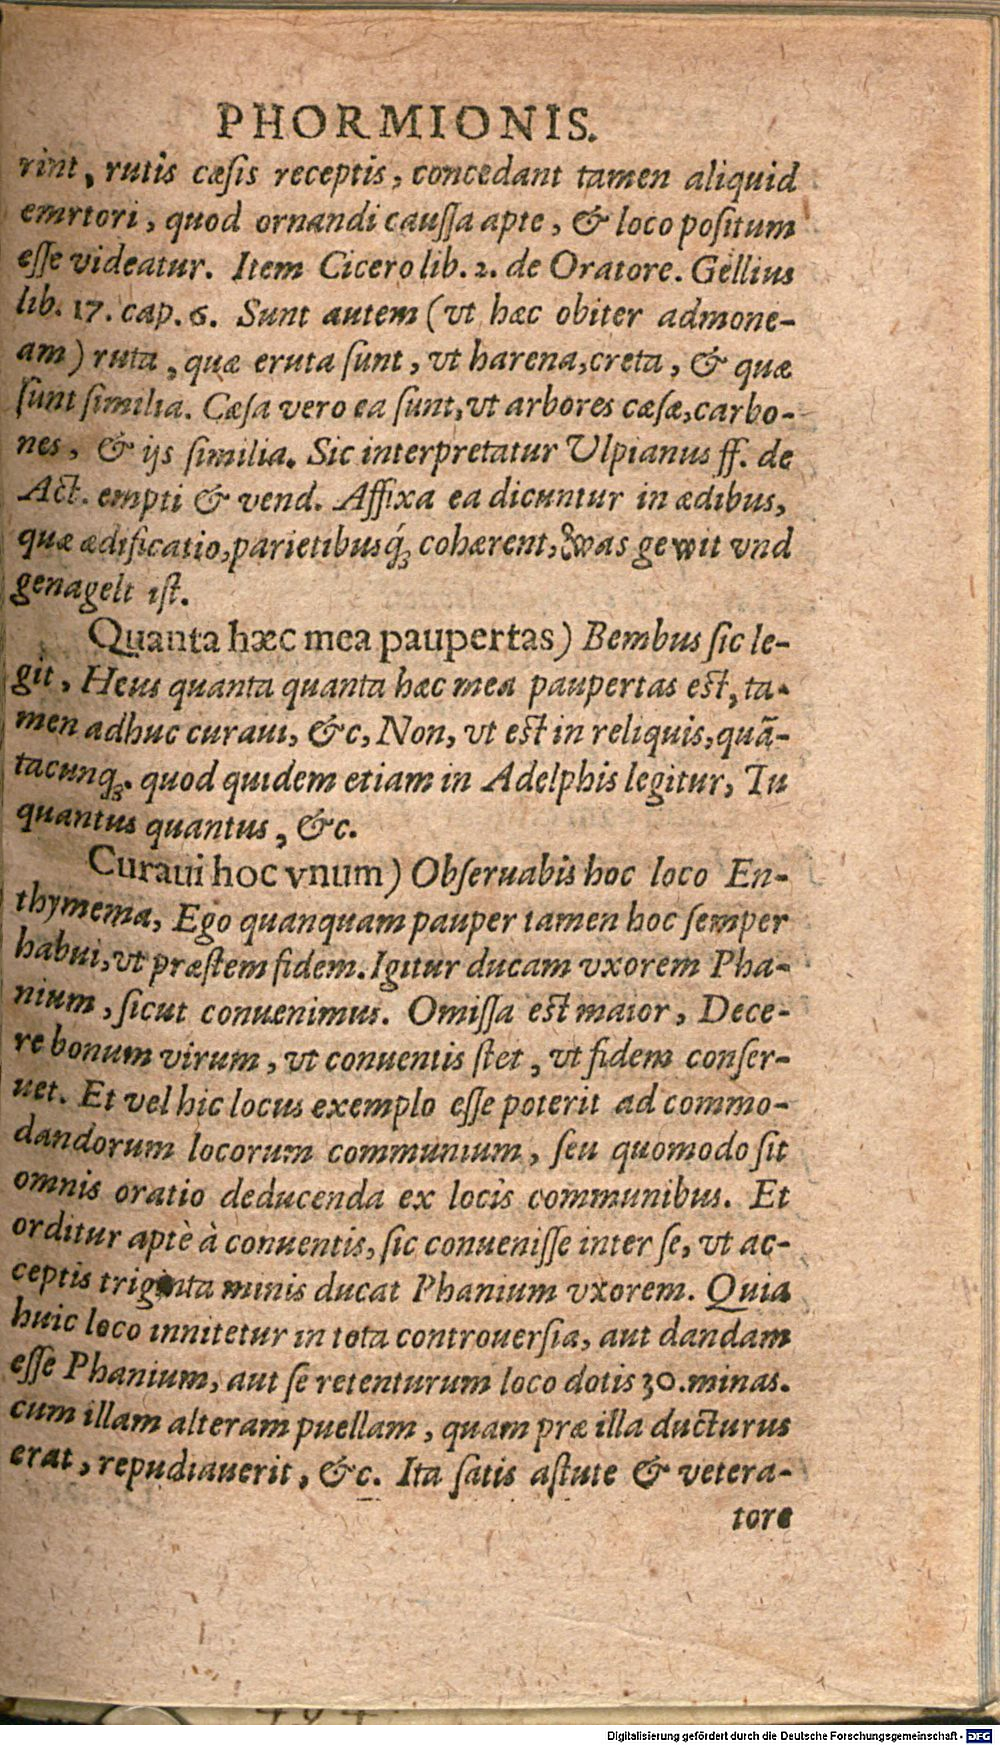 PHORMIONIS.
rint, rutis cæsis receptis, concedant tamen aliquid
emrtori, quod ornandi caussa apte, & loco positum
esse videatur. Item Cicero lib. 2. de Oratore. Gellius
lib. 17. cap. 6. Sunt autem (vt hæc obiter admone-
am) ruta, quæ eruta sunt, vt harena, creta, & quæ
sunt similia. Cæsa vero ea sunt, vt arbores cæsæ, carbo-
nes, & ijs similia. Sic interpretatur Vlpianus ff. de
Act. empti & vend. Affixa ea dicuntur in ædibus,
quæ ædificatio, parietibusq́ꝫ cohærent, was gewit vnd
genagelt ist.
Quanta hæc mea paupertas) Bembus sic le-
git, Heus quanta quanta hæc mea paupertas est, ta-
men adhuc curaui, &c, Non, vt est in reliquis, quã-
tacunqꝫ. quod quidem etiam in Adelphis legitur, Tu
quantus quantus, &c.
Curaui hoc vnum) Obseruabis hoc loco En-
thymema, Ego quanquam pauper tamen hoc semper
habui, vt præstem fidem. Igitur ducam vxorem Pha-
nium, sicut conuenimus. Omissa est maior, Dece-
re bonum virum, vt conuentis stet, vt fidem conser-
uet. Et vel hic locus exemplo esse poterit ad commo-
dandorum locorum communium, seu quomodo sit
omnis oratio deducenda ex locis communibus. Et
orditur aptè à conuentis, sic conuenisse inter se, vt ac-
ceptis triginta minis ducat Phanium vxorem. Quia
huic loco innitetur in tota controuersia, aut dandam
esse Phanium, aut se retenturum loco dotis 30. minas.
cum illam alteram puellam, quam præ illa ducturus
erat, repudiauerit, &c. Ita satis astute & vetera-
tore
Digitalisierung gefördert durch die Deutsche Forschungsgemeinschaft - DFG